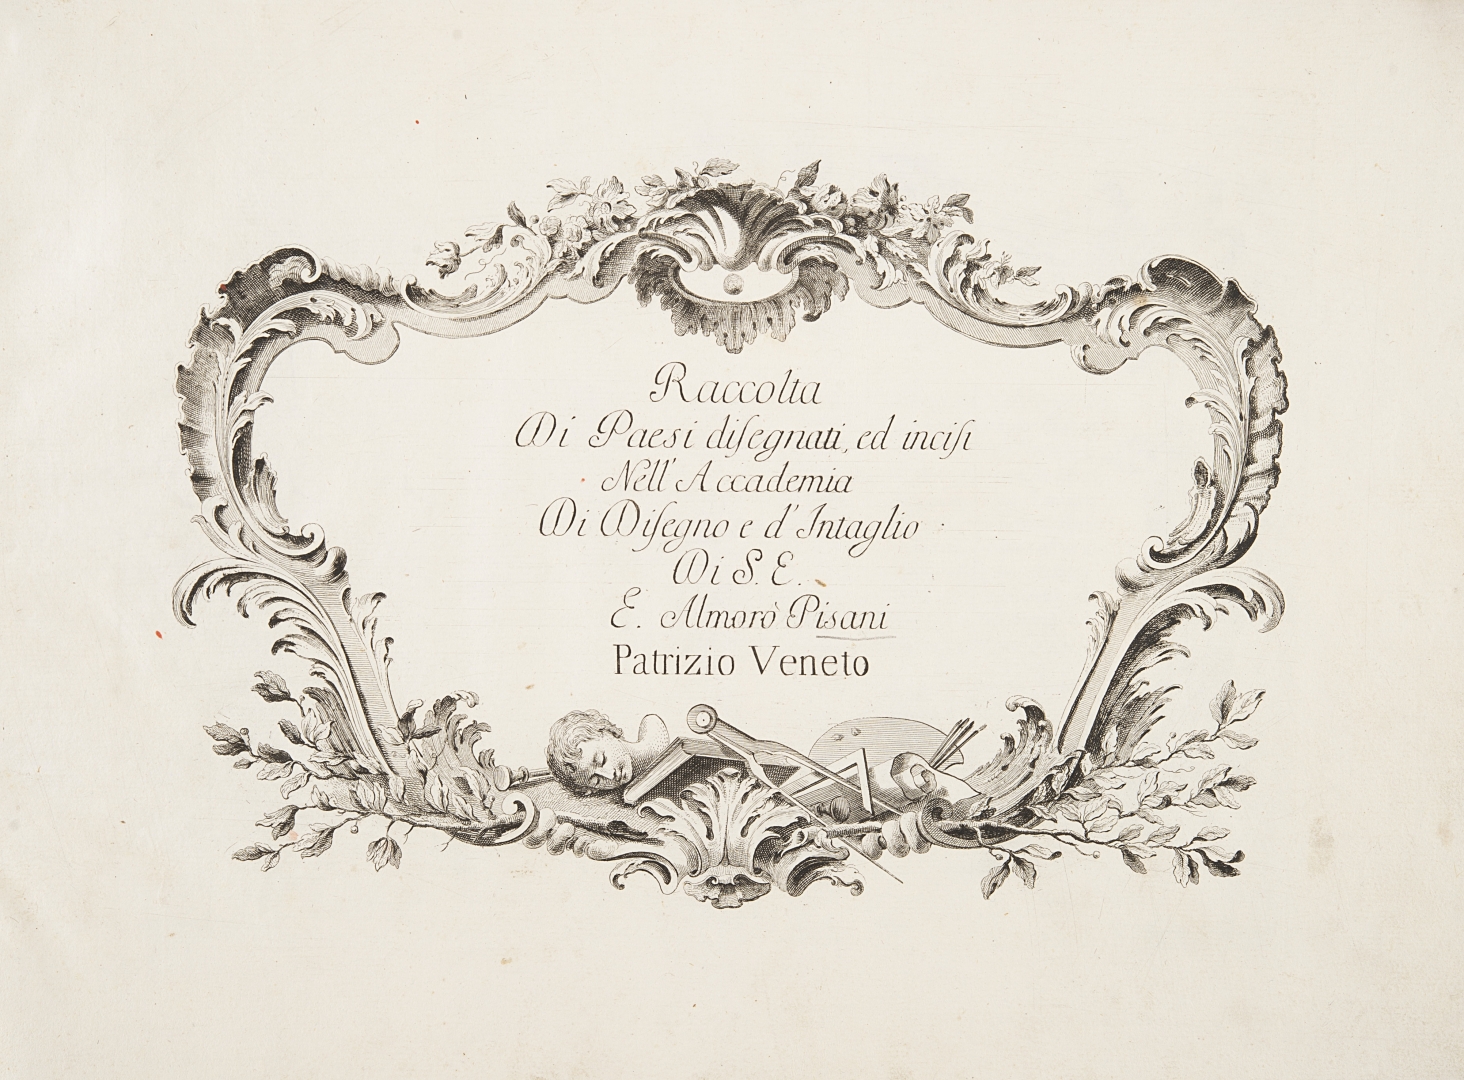 Raccolta
Di Paesi diſegnati, ed inciſi
Nell' Accademia
Di Diſegno e d' Intaglio
Di S. E.
E. Almorò Pisani
Patrizio Veneto